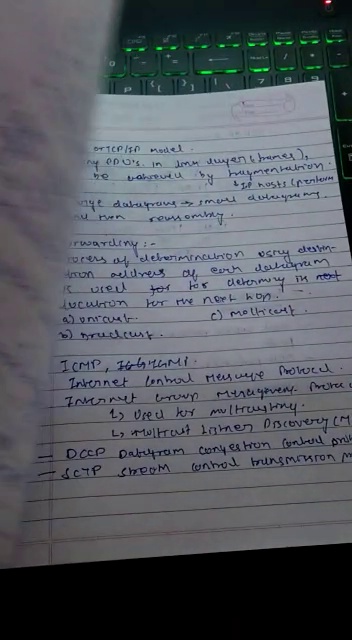 of TCP/IP model.
ny PDU's. in link layer (frames),
be achieved by fragmentation.
↳ IP hosts (perform
large datagrams → small datagrams.
and then reassembly.
orwarding :-
process of determination using destin-
tion address of each datagram
is used for to determine its next
location for the next hop.
a) unicast. c) multicast.
b) broadcast.
ICMP, IGMP.
Internet Control Message Protocol.
Internet Group Management Protoco
↳ Used for multicasting.
↳ Multicast Listener Discovery (M
— DCCP Datagram congestion control pro
— SCTP Stream control transmission